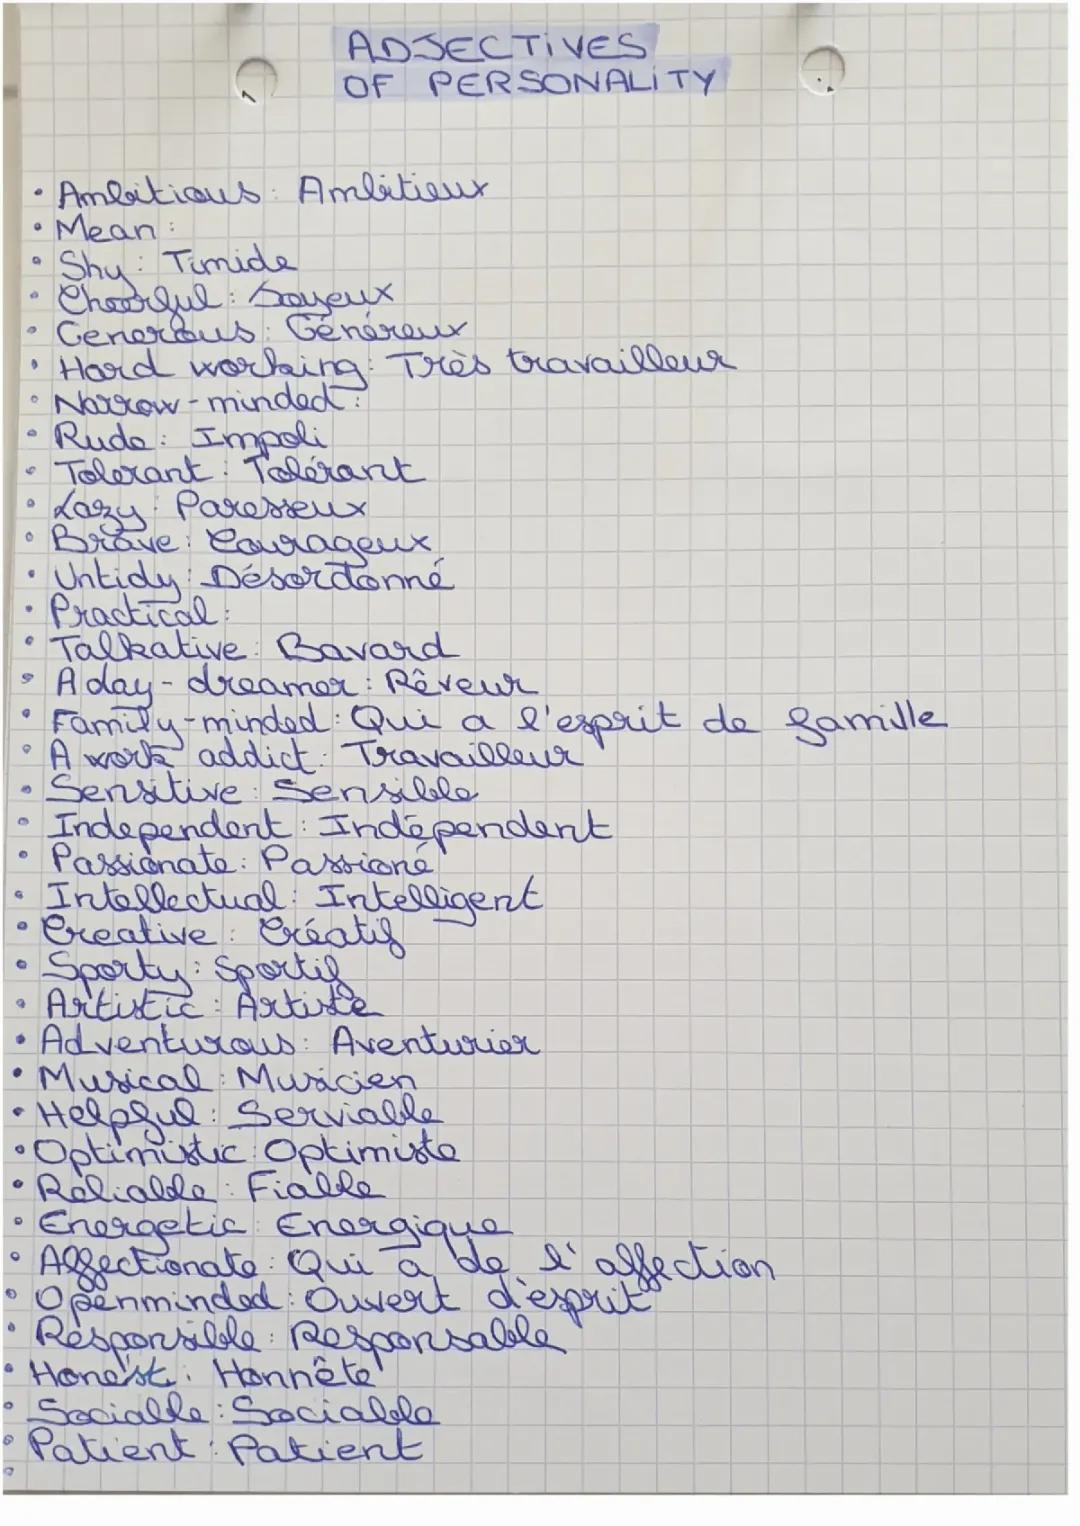 ADJECTIVES
OF PERSONALITY
• Ambitious: Ambitieux
• Mean:
• Shy: Timide
• Cheerful: Joyeux
• Generous: Généreux
• Hard working: Très travailleur
• Narrow-minded:
• Rude: Impoli
• Tolerant: Tolérant
• Lazy: Paresseux
• Brave: Courageux
• Untidy: Désordonné
• Practical:
• Talkative: Bavard
• A day-dreamer: Rêveur
• Family-minded: Qui a l'esprit de famille
• A work addict: Travailleur
• Sensitive: Sensible
• Independent: Indépendant
• Passionate: Passioné
• Intellectual: Intelligent
• Creative: Créatif
• Sporty: Sportif
• Artistic: Artiste
• Adventurous: Aventurier
• Musical: Musicien
• Helpful: Serviable
• Optimistic: Optimiste
• Reliable: Fiable
• Energetic: Energique
• Affectionate: Qui a de l'affection
• Openminded: Ouvert d'esprit
• Responsible: Responsable
• Honest: Honnête
• Sociable: Sociable
• Patient: Patient
•